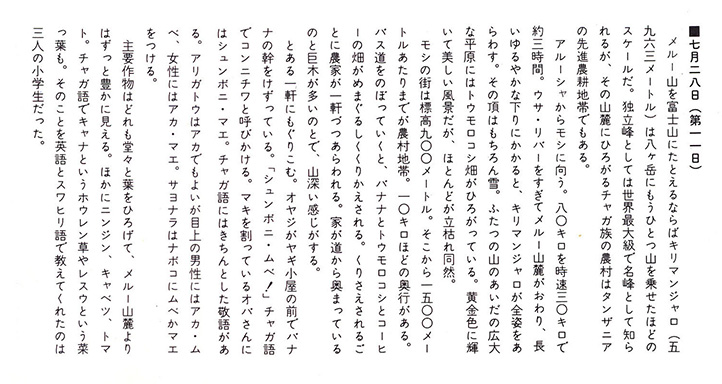 ■七月二八日(第一一日)
　メルー山を富士山にたとえるならばキリマンジャロ(五
九六三メートル)は八ヶ岳にもうひとつ山を乗せたほどの
スケールだ。独立峰としては世界最大級で名峰として知ら
れるが、その山麓にひろがるチャガ族の農村はタンザニア
の先進農耕地帯でもある。
　アルーシャからモシに向う。八〇キロを時速三〇キロで
約三時間。ウサ・リバーをすぎてメルー山麓がおわり、長
いゆるやかな下りにかかると、キリマンジャロが全姿をあ
らわす。その頂はもちろん雪。ふたつの山のあいだの広大
な平原にはトウモロコシ畑がひろがっている。黄金色に輝
いて美しい風景だが、ほとんどが立枯れ同然。
　モシの街は標高九〇〇メートル。そこから一五〇〇メー
トルあたりまでが農村地帯。一〇キロほどの奥行がある。
バス道をのぼっていくと、バナナとトウモロコシとコーヒ
ーの畑がめまぐるしくくりかえされる。くりさえされるご
とに農家が一軒づつあらわれる。家が道から奥まっている
のと巨木が多いのとで、山深い感じがする。
　とある一軒にもぐりこむ。オヤジがヤギ小屋の前でバナ
ナの幹をけずっている。「シュンボニ・ムベ!」チャガ語
でコンニチワと呼びかける。マキを割っているオバさんに
はシュンボニ・マエ。チャガ語にはきちんとした敬語があ
る。アリガトウはアカでもよいが目上の男性にはアカ・ム
ベ、女性にはアカ・マエ。サヨナラはナボコにムベかマエ
をつける。
　主要作物はどれも堂々と葉をひろげて、メルー山麓より
はずっと豊かに見える。ほかにニンジン、キャベツ、トマ
ト。チャガ語でキャナというホウレン草やレスウという菜
っ葉も。そのことを英語とスワヒリ語で教えてくれたのは
三人の小学生だった。